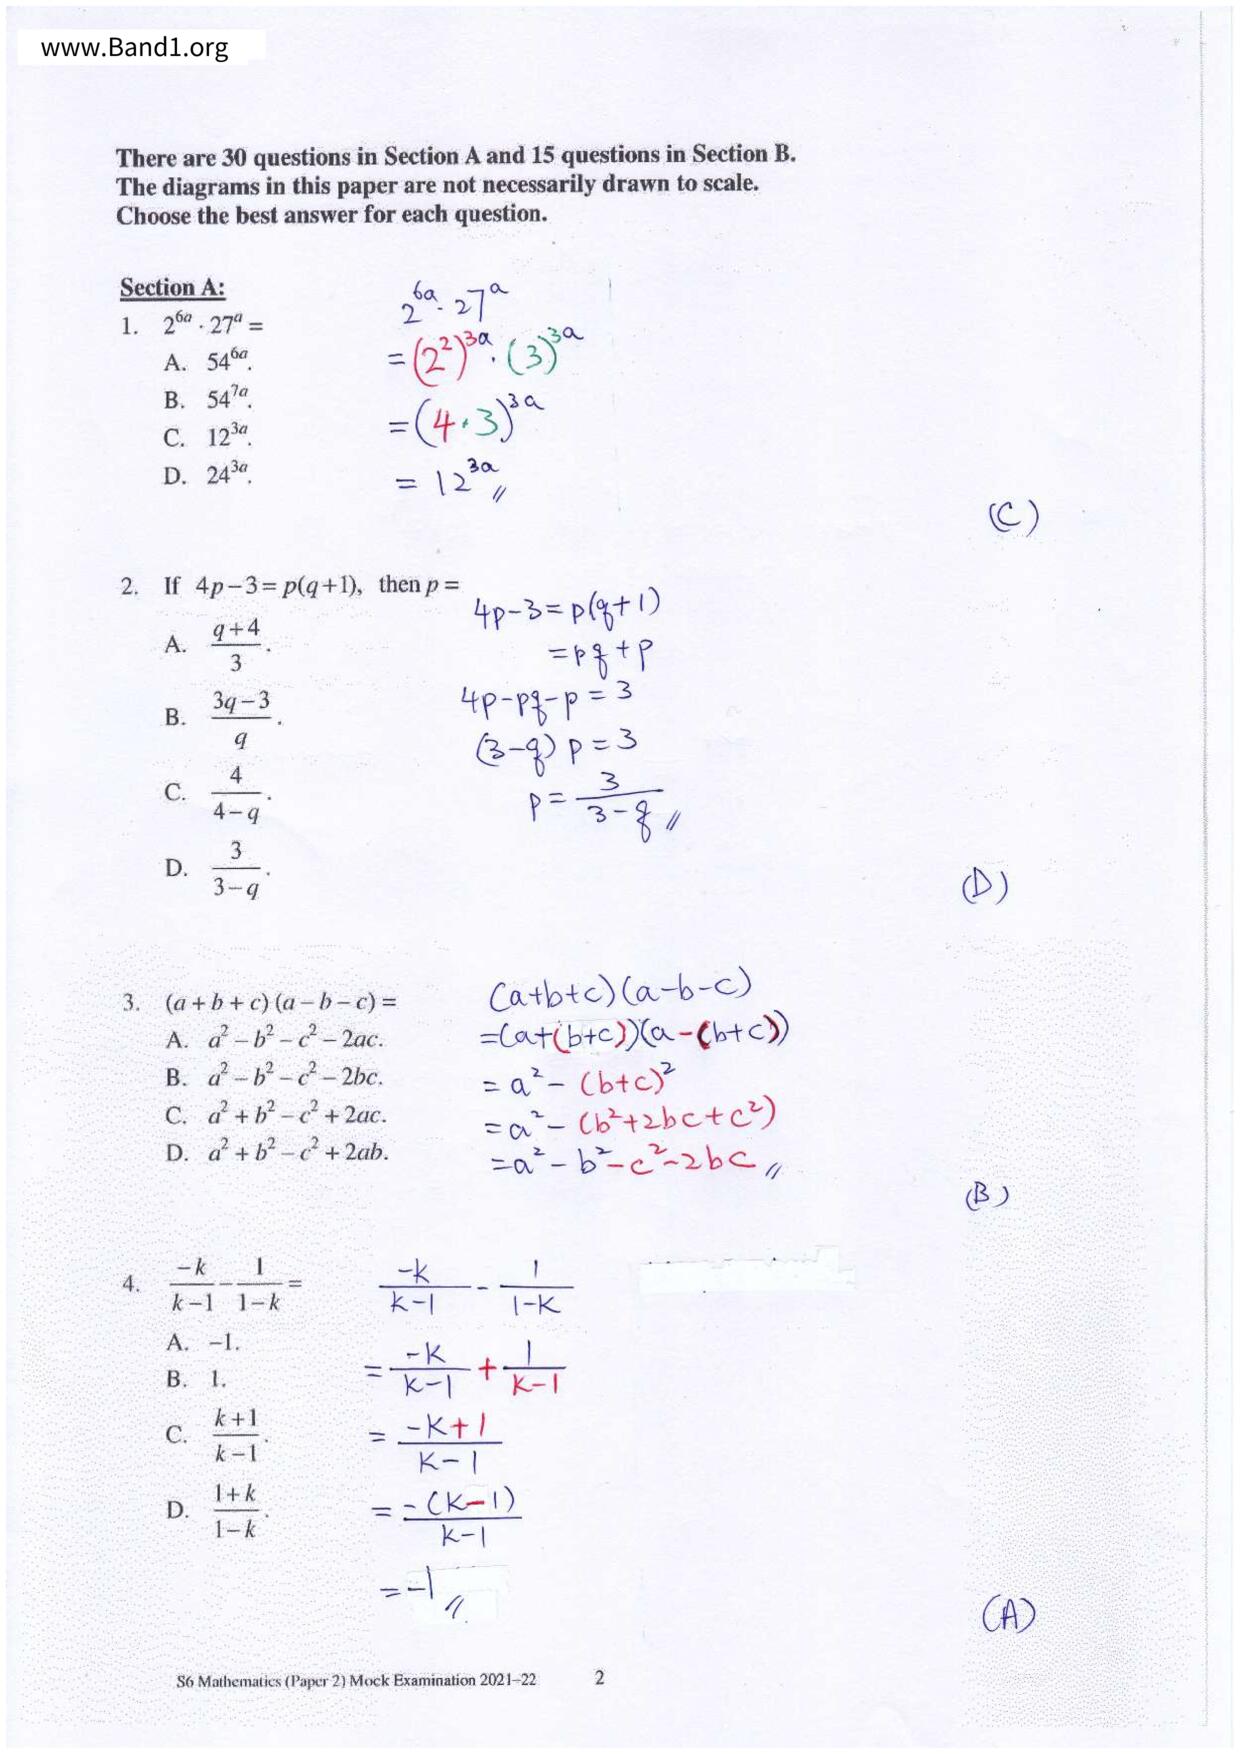 www.Band1.org
There are 30 questions in Section A and 15 questions in Section B.
The diagrams in this paper are not necessarily drawn to scale.
Choose the best answer for each question.
Section A:
1. 2^{6a} · 27^a =
A. 54^{6a}.
B. 54^{7a}.
C. 12^{3a}.
D. 24^{3a}.
2^{6a} · 27^a
= (2^2)^{3a} · (3)^{3a}
= (4·3)^{3a}
= 12^{3a} //
(C)
2. If 4p−3=p(q+1), then p =
A. (q+4)/3.
B. (3q−3)/q.
C. 4/(4−q).
D. 3/(3−q).
4p−3=p(q+1)
=pq+p
4p−pq−p=3
(3−q)p=3
p=3/(3−q) //
(D)
3. (a+b+c)(a−b−c)=
A. a²−b²−c²−2ac.
B. a²−b²−c²−2bc.
C. a²+b²−c²+2ac.
D. a²+b²−c²+2ab.
(a+b+c)(a−b−c)
=(a+(b+c))(a−(b+c))
=a²−(b+c)²
=a²−(b²+2bc+c²)
=a²−b²−c²−2bc //
(B)
4. −k/(k−1) − 1/(1−k) =
A. −1.
B. 1.
C. (k+1)/(k−1).
D. (1+k)/(1−k).
−k/(k−1) − 1/(1−k)
= −k/(k−1) + 1/(k−1)
= (−k+1)/(k−1)
= −(k−1)/(k−1)
=−1 //
(A)
S6 Mathematics (Paper 2) Mock Examination 2021–22 2